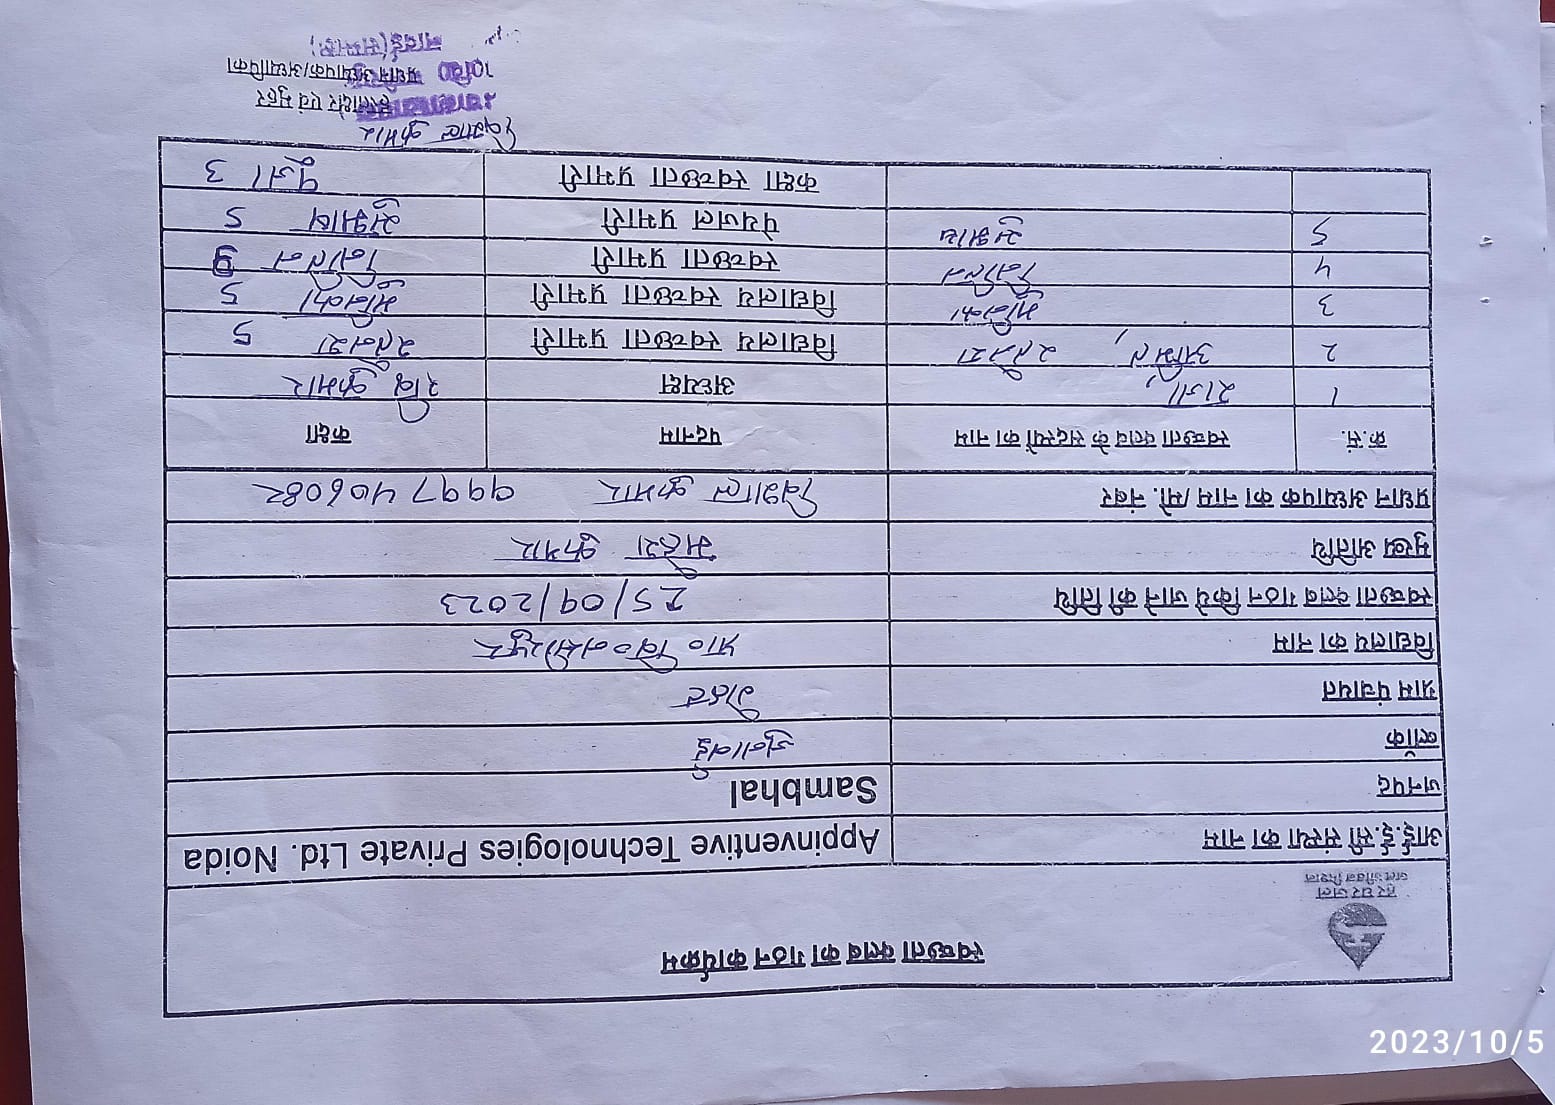 स्वच्छता क्लब का गठन कार्यक्रम
हर घर जल
जल जीवन मिशन
आई.ई.सी संस्था का नाम Appinventive Technologies Private Ltd. Noida
जनपद Sambhal
ब्लॉक जुनावई
ग्राम पंचायत मेहट
विद्यालय का नाम प्रा० वि० नसीरपुर
स्वच्छता क्लब गठन किये जाने की तिथि 25/09/2023
मुख्य अतिथि कुमार
प्रधान अध्यापक का नाम /मो. नंबर विशाल कुमार 9997406082
क्र.सं. स्वच्छता क्लब के सदस्यों का नाम पदनाम कक्षा
1 राजा, अध्यक्ष रवि कुमार
2 अमित, रत्नेश विद्यालय स्वच्छता प्रभारी रत्नेश 5
3 मोनिका विद्यालय स्वच्छता प्रभारी मोनिका 5
4 विनीत स्वच्छता प्रभारी विनीत
5 सुभाष पेयजल प्रभारी सुभाष 5
कक्षा स्वच्छता प्रभारी पूजा 3
विशाल कुमार
हस्ताक्षर एवं मुहर
प्रधान अध्यापक/अध्यापिका
2023/10/5